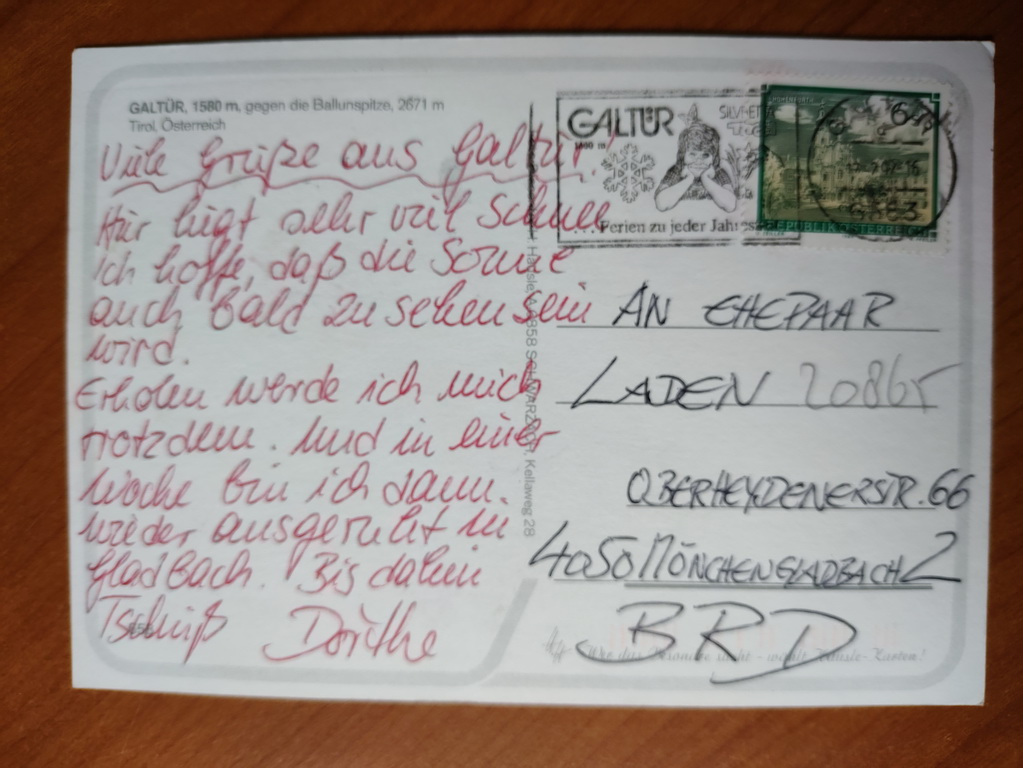 GALTÜR, 1580 m, gegen die Ballunspitze, 2671 m
Tirol, Österreich
Viele Grüße aus Galtür.
Hier liegt sehr viel Schnee
Ich hoffe, daß die Sonne
auch bald zu sehen sein
wird.
Erholen werde ich mich
trotzdem. Und in einer
Woche bin ich dann
wieder ausgeruht in
Gladbach. Bis dahin
Tschüß Dörthe
GALTÜR
SILVRETTA
... Ferien zu jeder Jahres
REPUBLIK ÖSTERREICH
6563
AN EHEPAAR
LADEN 20865
OBERHEYDENERSTR. 66
4050 MÖNCHENGLADBACH 2
BRD
Kellaweg 28